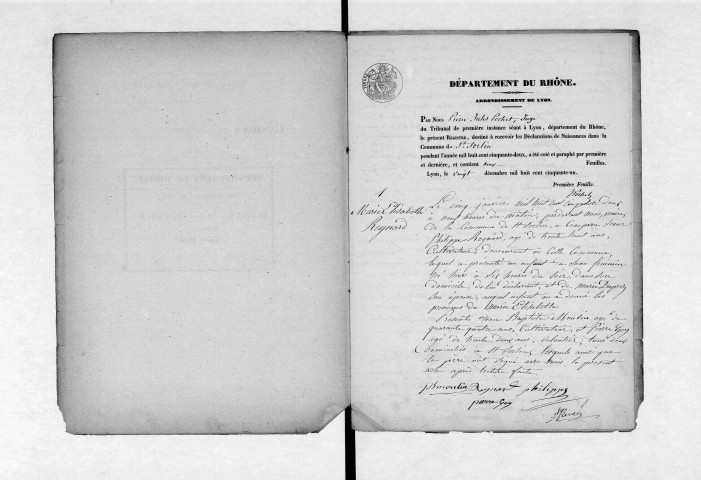 DÉPARTEMENT DU RHÔNE.
ARRONDISSEMENT DE LYON.
PAR NOUS Pierre Jules Juge
du Tribunal de première instance séant à Lyon, département du Rhône,
le présent REGISTRE, destiné à recevoir les Déclarations de Naissances dans la
Commune de St Sorlin
pendant l'année mil huit cent cinquante-deux, a été coté et paraphé par première
et dernière, et contient deux Feuilles.
Lyon, le vingt décembre mil huit cent cinquante-un.
Première Feuille.
1
Marie Elisabeth
Reynard
Le cinq janvier mil huit cent cinquante deux
à neuf heures du matin, pardevant nous, maire
de la Commune de St Sorlin, a comparu
Philippe Reynard, agé de trente huit ans,
Cultivateur, demeurant en cette Commune,
lequel a présenté un enfant du sexe féminin
né hier à six heures du soir, dans son
domicile, de lui déclarant, et de marie
son épouse, auquel enfant on a donné les
prénoms de Marie Elisabeth
Présents Jean Baptiste Moulin agé de
quarante quatre ans, Cultivateur, et Pierre Goy
agé de trente deux ans, tous deux
domiciliés à St Sorlin, lesquels ainsi que
le père ont signé avec nous le présent
acte après lecture faite
Bmoulin Reynard philippe
pierre Goy